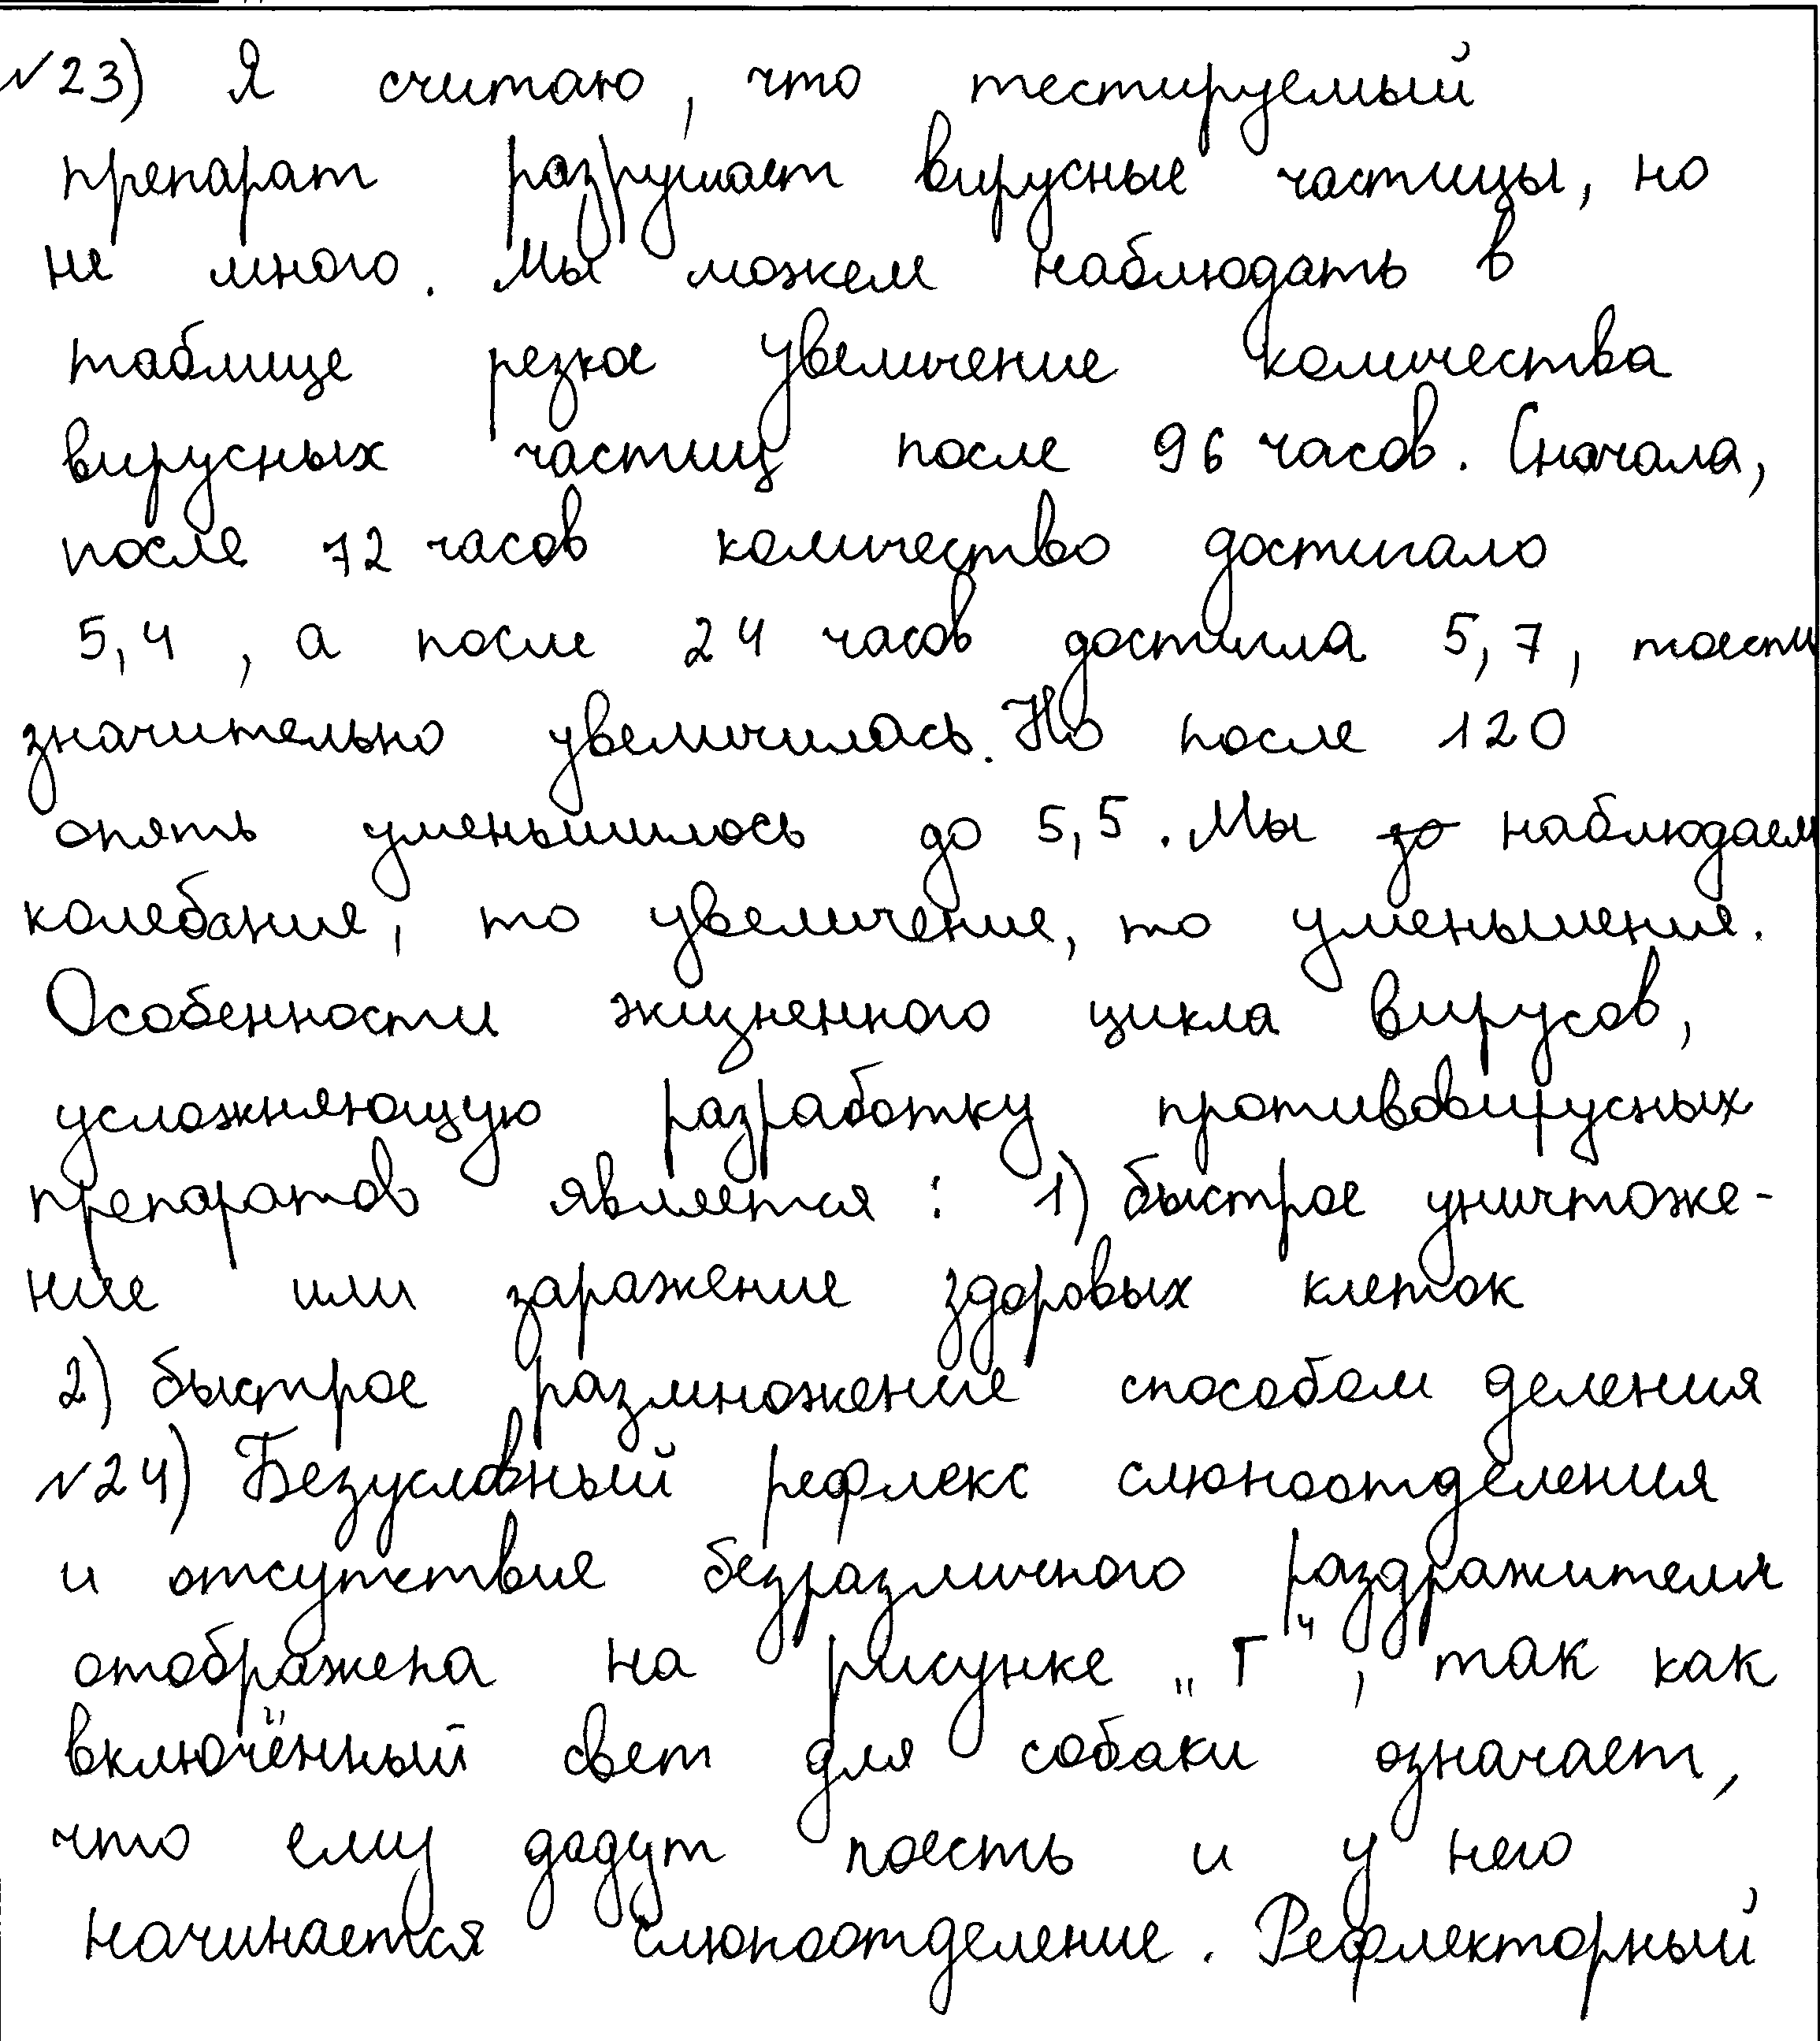 №23) Я считаю, что тестируемый
препарат разрушает вирусные частицы, но
не много. Мы можем наблюдать в
таблице резкое увеличение количества
вирусных частиц после 96 часов. Сначала,
после 72 часов количество достигало
5,4, а после 24 часов достигла 5,7, тоесть
значительно увеличилась. Но после 120
опять уменьшилось до 5,5. Мы наблюдаем
колебания, то увеличение, то уменьшения.
Особенности жизненного цикла вирусов,
усложняющую разработку противовирусных
препаратов является: 1) быстрое уничтоже-
ние или заражение здоровых клеток
2) быстрое размножение способом деления
№24) Безусловный рефлекс слюноотделения
и отсутствие безразличного раздражителя
отображена на рисунке „Г", так как
включённый свет для собаки означает,
что ему дадут поесть и у него
начинается слюноотделение. Рефлекторный